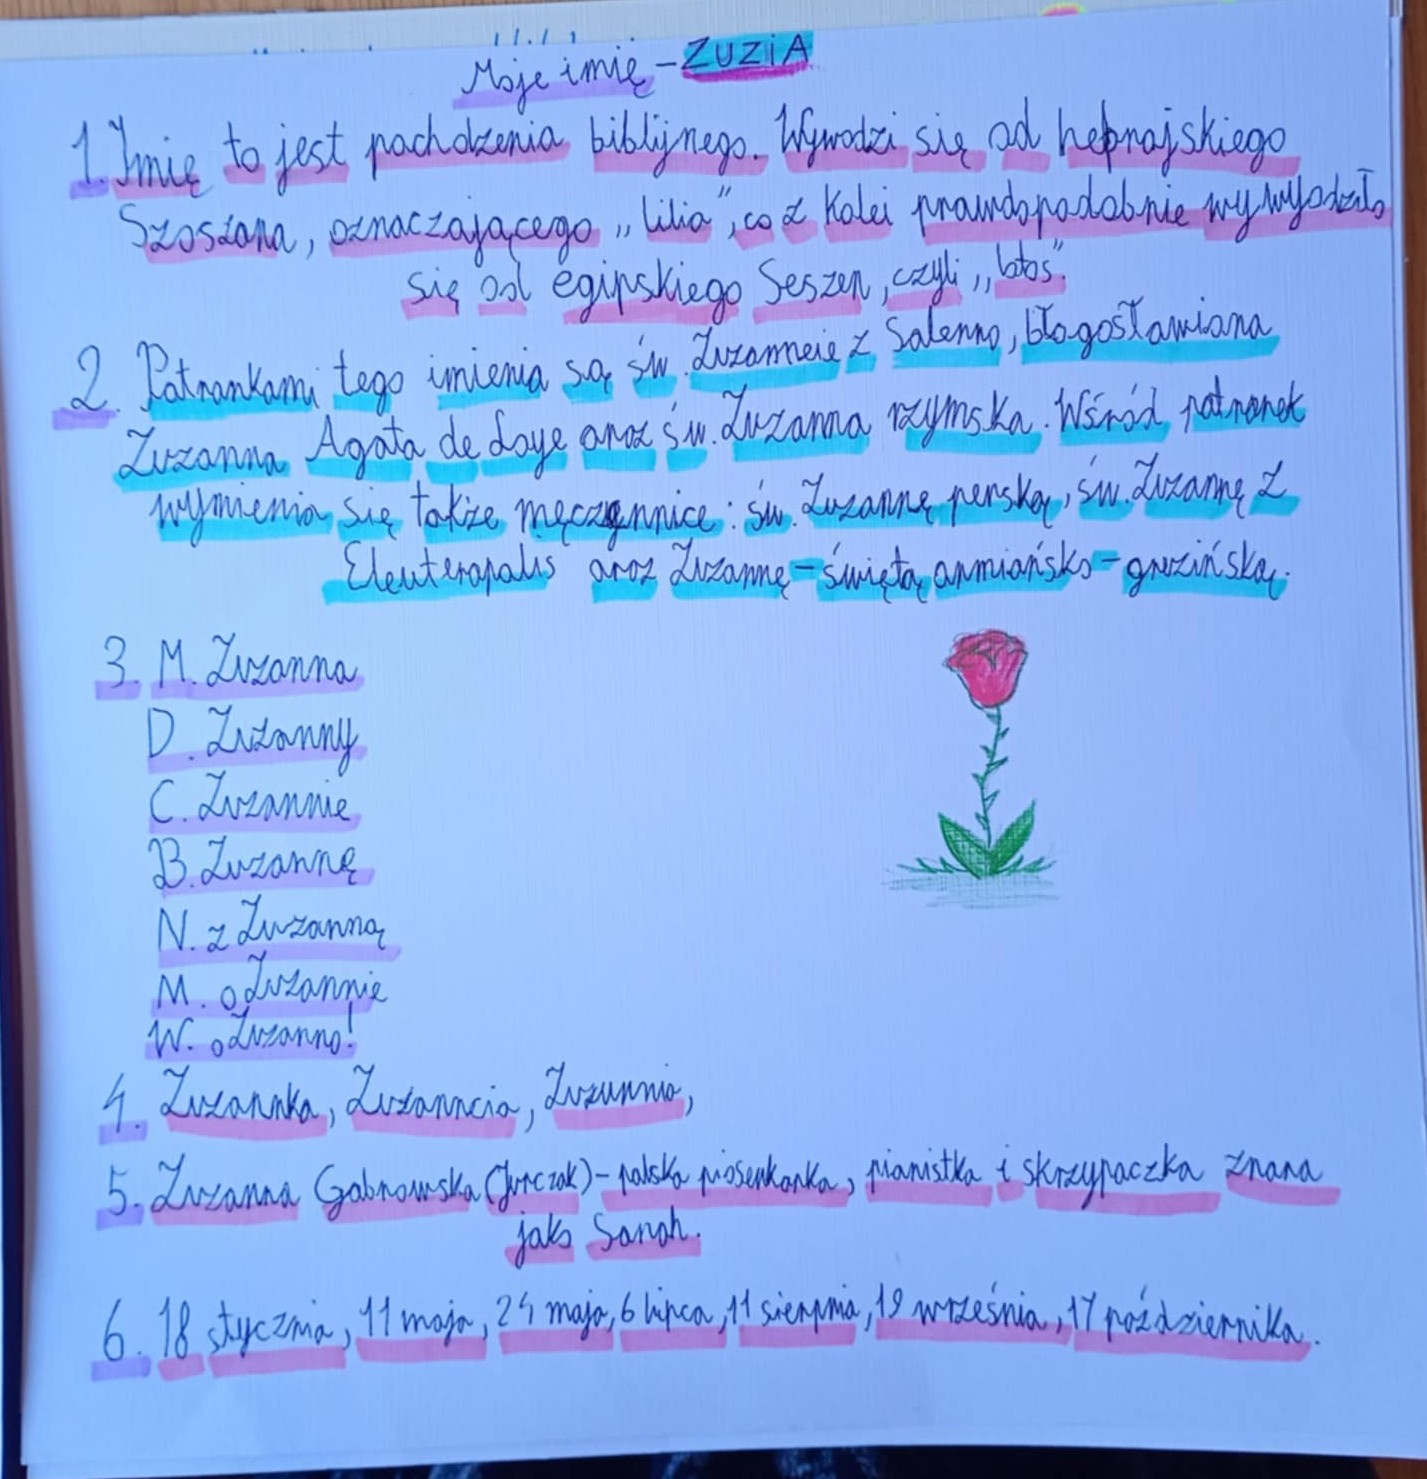 Moje imię - ZUZIA
1. Imię to jest pochodzenia biblijnego. Wywodzi się od hebrajskiego
Szoszana, oznaczającego „lilia", co z kolei prawdopodobnie wywyodziło
się od egipskiego Seszen, czyli „lotos".
2. Patronkami tego imienia są św. Zuzanneie z Salerno, błogosławiona
Zuzanna Agata de Loye oraz św. Zuzanna rzymska. Wśród patronek
wymienia się także męczennice: św. Zuzannę perską, św. Zuzannę z
Eleuteropolis oraz Zuzannę - świętą armiańsko - gruzińską.
3. M. Zuzanna
D. Zuzanny
C. Zuzannie
B. Zuzannę
N. z Zuzanną
M. o Zuzannie
W. o Zuzanno!
4. Zuzannka, Zuzanncia, Zuzunnia,
5. Zuzanna Grabrowska (Jurczak) - polska piosenkarka, pianistka i skrzypaczka znana
jako Sanah.
6. 18 stycznia, 11 maja, 24 maja, 6 lipca, 11 sierpnia, 19 września, 17 października.